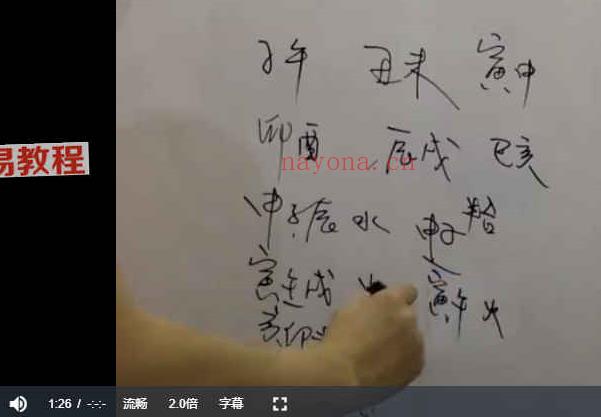 子午 丑未 寅申
易教程
卯酉 辰戌 巳亥
nayona.cn
申子辰水 申子
寅午戌火 寅午火
亥卯
1:26 / -:-:- 流畅 2.0倍 字幕